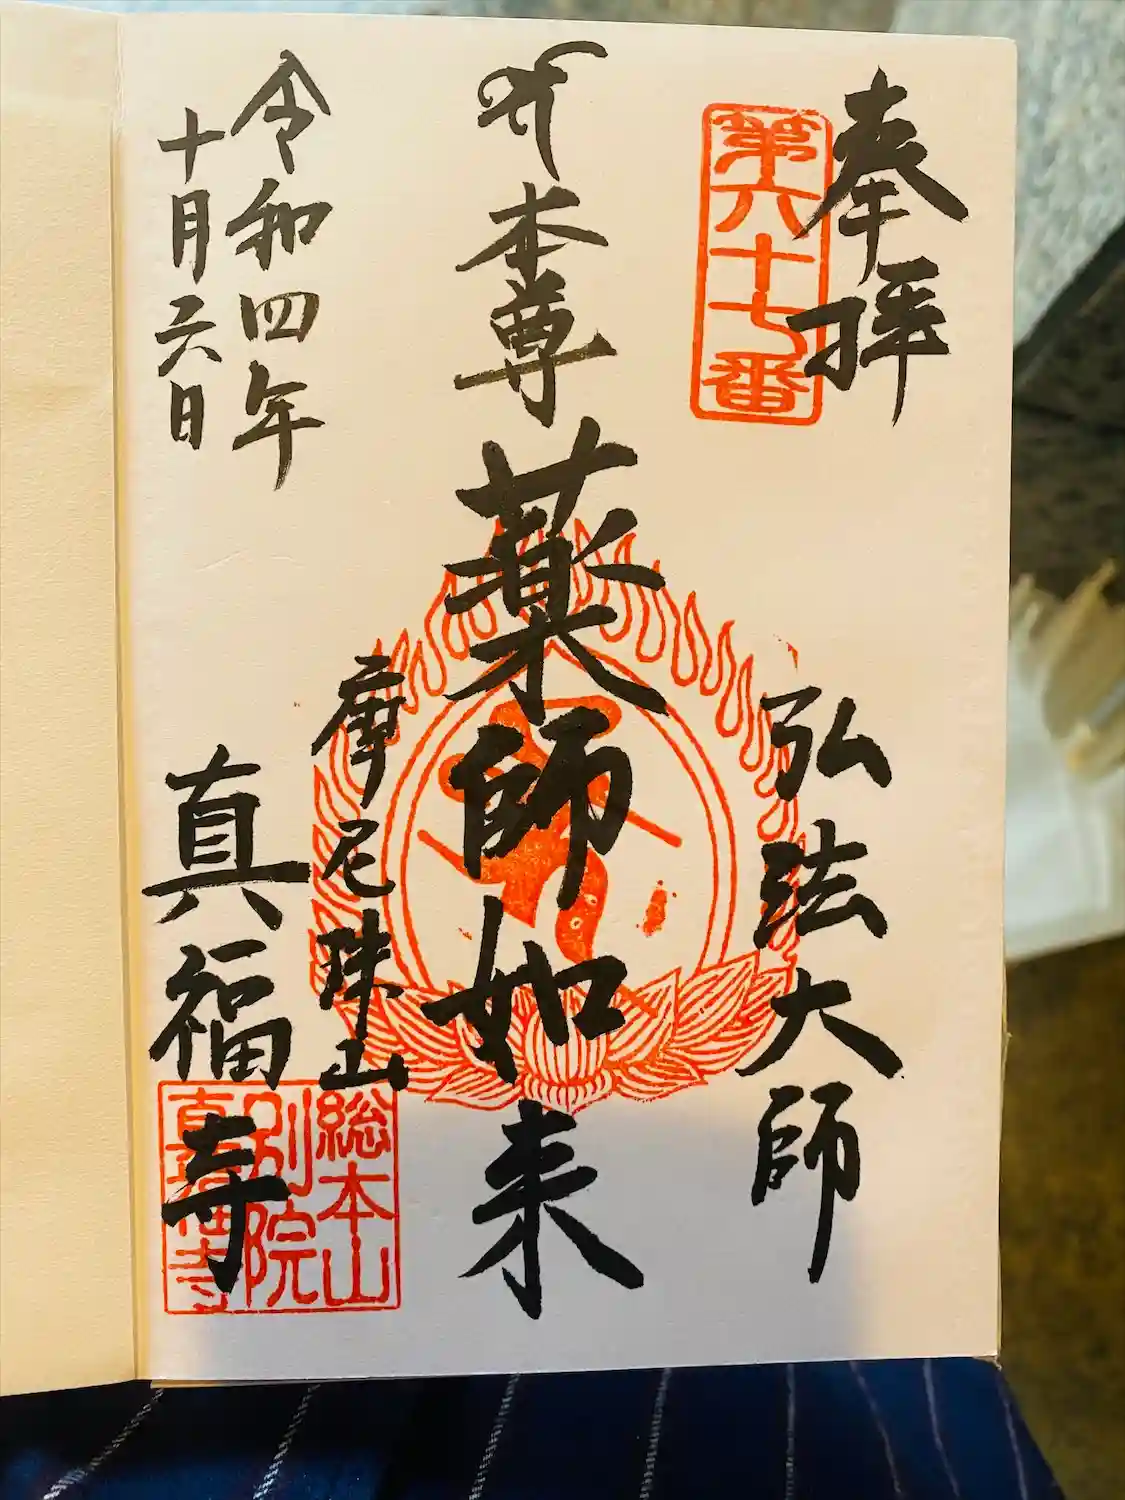 奉拝
第六十七番
弘法大師
本尊
薬師如来
令和四年
十月六日
摩尼珠山
真福寺
総本山
別院
真福寺